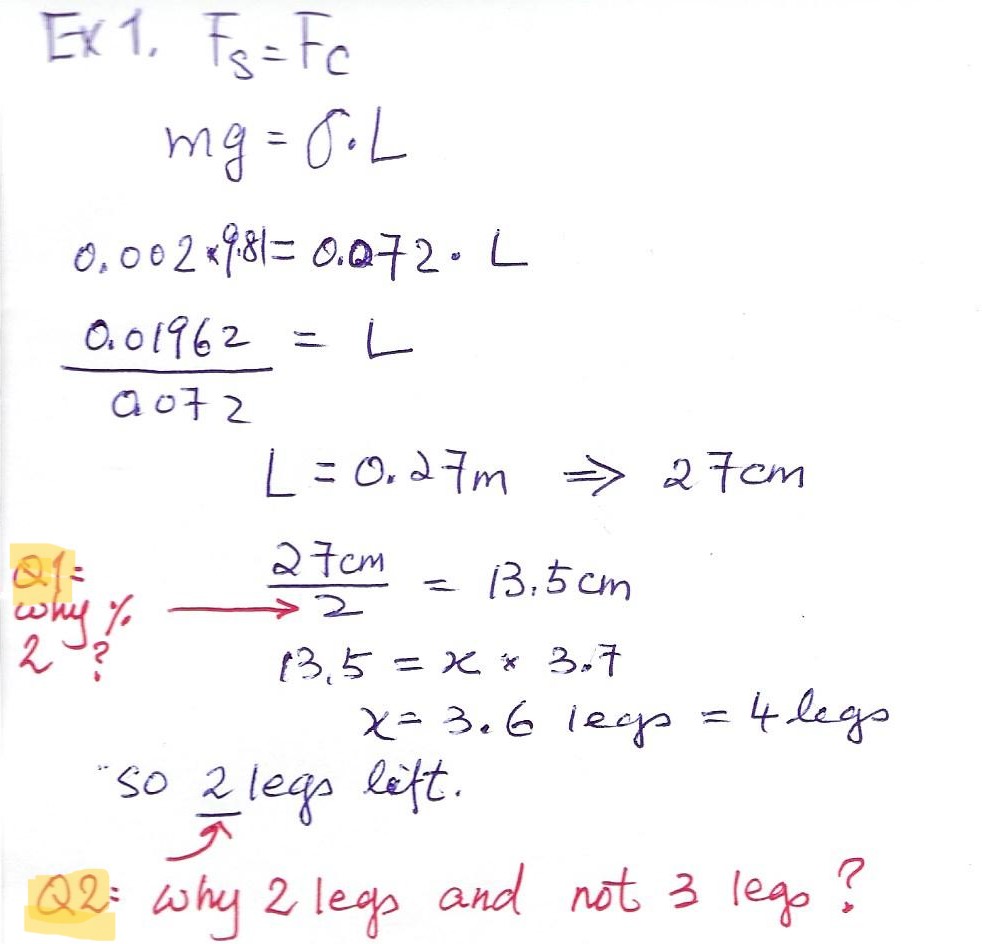 Ex 1. Fs = Fc
mg = σ. L
0.002 × 9.81 = 0.072 . L
0.01962 / 0.072 = L
L = 0.27m ⇒ 27cm
27cm / 2 = 13.5 cm
Q1: why % 2 ?
13.5 = x * 3.7
x = 3.6 legs = 4 legs
so 2 legs left.
Q2: why 2 legs and not 3 legs?